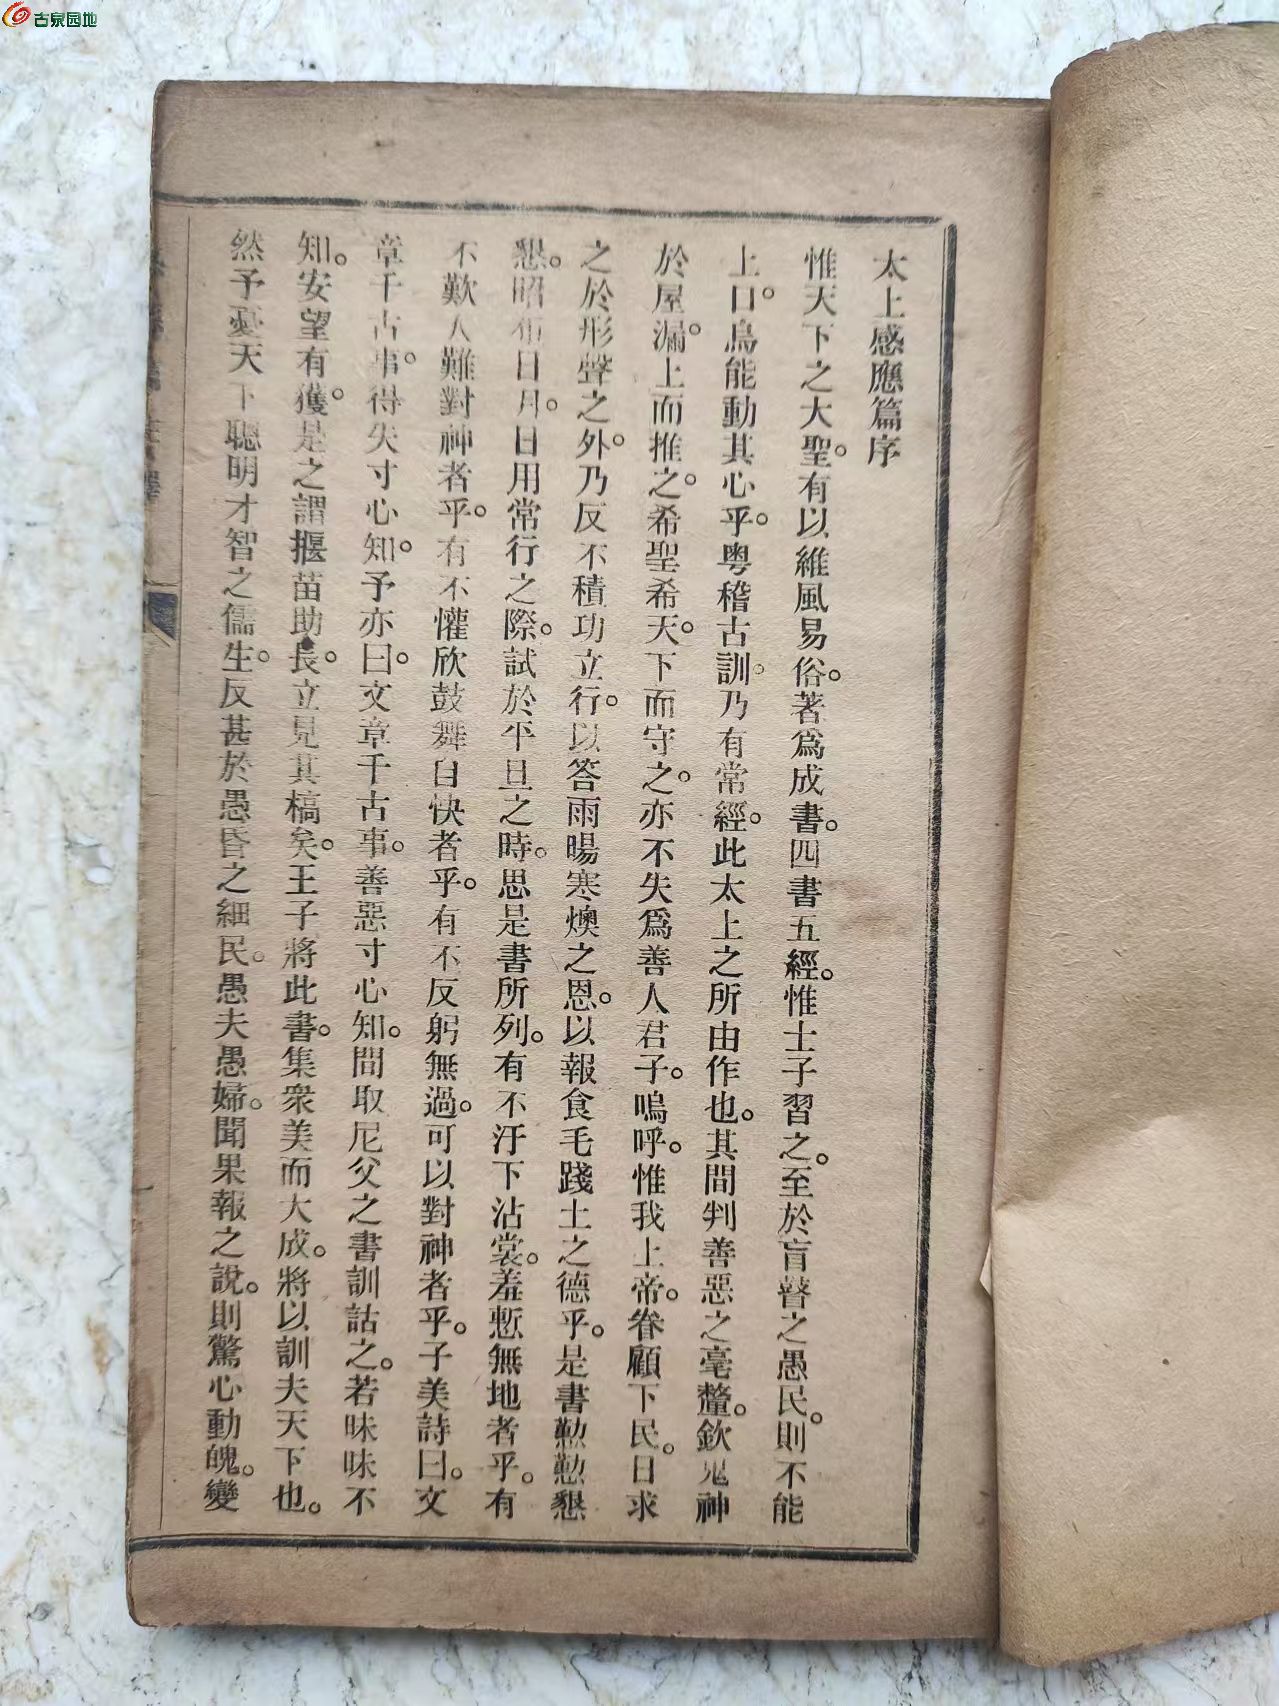 古泉园地
太上感應篇序
惟天下之大聖。有以維風易俗。著爲成書。四書五經。惟士子習之。至於盲瞽之愚民。則不能
上口。烏能動其心乎。粵稽古訓。乃有常經。此太上之所由作也。其問判善惡之毫釐。欽鬼神
於屋漏。上而推之。希聖希天。下而守之。亦不失爲善人君子。嗚呼。惟我上帝。眷顧下民。日求
之於形聲之外。乃反不積功立行。以答雨暘寒燠之恩。以報食毛踐土之德乎。是書懃懃懇
懇。昭布日月。日用常行之際。試於平旦之時。思是書所列。有不汗下沾裳。羞慙無地者乎。有
不歎人難對神者乎。有不懽欣鼓舞自快者乎。有不反躬無過。可以對神者乎。子美詩曰。文
章千古事。得失寸心知。予亦曰。文章千古事。善惡寸心知。問取尼父之書訓詁之。若昧昧不
知。安望有獲。是之謂揠苗助長。立見其槁矣。王子將此書。集衆美而大成。將以訓夫天下也。
然予憂天下聰明才智之儒生。反甚於愚昏之細民。愚夫愚婦。聞果報之說。則驚心動魄。變